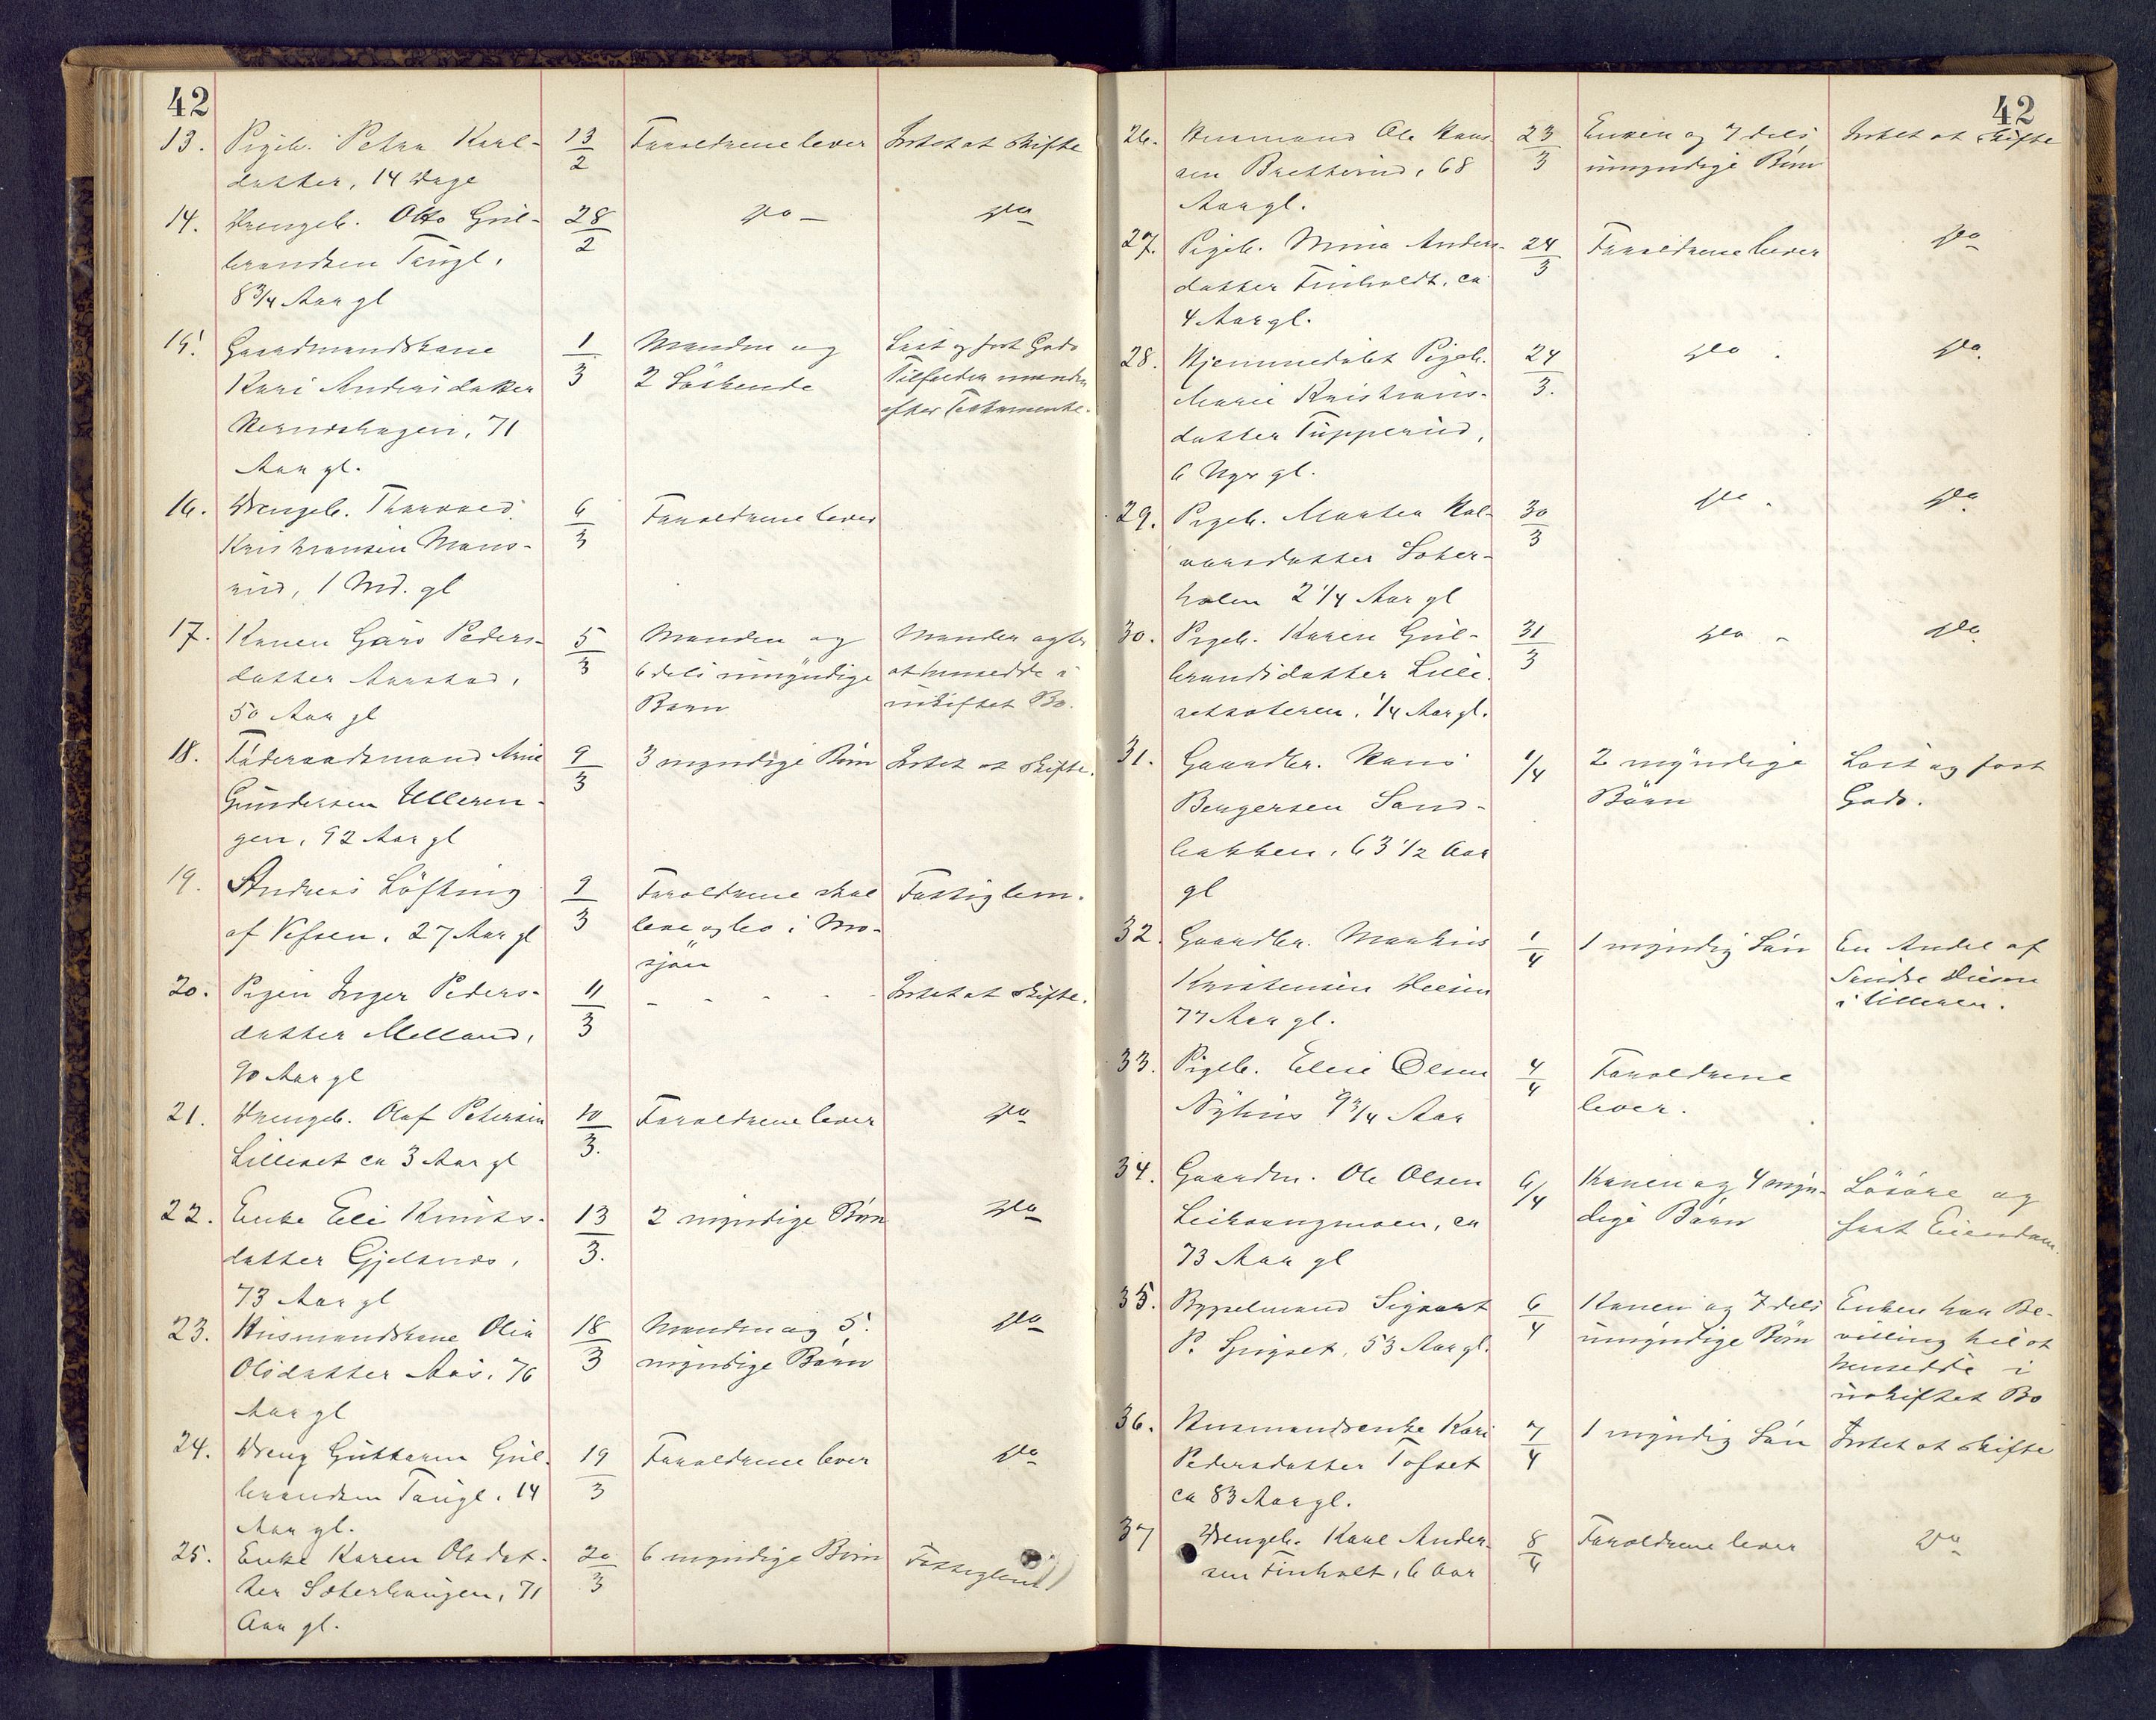 42
13. Pigeb. Petra Karl- 13/2 Forældrene lever Intet at skifte
datter, 14 Dage
14. Drengeb. Otto Gul- 28/2 Do — Do
brandsen Taugl.
8 3/4 Aar gl
15. Gaardmandskone 1/3 Manden og Løst og fast Gods
Kari Andersdatter 2 Søskende Tilfalder manden
71 efter Testamente.
Aar gl.
16. Drengeb. Thorvald 6/3 Forældrene lever
Kristiansen Mons-
rud, 1 Md. gl
17. Konen Guro Peders- 5/3 Manden og Manden agter
datter Aarstad, 6 dels umyndige at hensidde i
50 Aar gl Børn uskiftet Bo.
18. Føderaadsmand Arne 9/3 3 myndige Børn Intet at skifte.
Gundersen Ulleren-
gen, 92 Aar gl
19. Andreas Löfting 9/3 Forældrene skal Fattiglem.
af Vefsen, 27 Aar gl leve og bo i Mo-
sjøen
20. Pigen Inger Peders- 11/3 - - - - Intet at skifte.
datter Melland,
90 Aar gl
21. Drengeb. Olaf Petersen 10/3. Forældrene lever Do
Lilleset ca 3 Aar gl
22. Enke Eli Knuts- 13/3. 2 myndige Børn Do
datter Gjelsnes,
73 Aar gl
23. Husmandskone Olia 18/3 Manden og 5 Do
Olsdatter Aas, 76 myndige Børn
Aar gl
24. Dreng Guttorm Gul- 19/3 Forældrene lever Do
brandsen Taugl. 14
Aar gl.
25. Enke Karen Olsdat- 20/3 6 myndige Børn Fattiglem
ter Sæterhaugen, 71
Aar gl.
42
26. Husmand Ole Hans- 23/3 Enken og 7 dels Intet at skifte
sen Bratterud, 68 umyndige Børn
Aar gl.
27. Pigeb. Mina Anders- 24/3 Forældrene lever Do
datter Finholdt, ca
4 Aar gl.
28. Hjemmedøbt Pigeb. 24/3. Do . Do.
Marie Kristians-
datter Tupperud,
6 Uger gl.
29. Pigeb. Martea Hal- 30/3 Do . Do
vorsdatter Sæter-
holen 2 1/4 Aar gl
30. Pigeb. Karen Gul- 31/3 Do - Do
brandsdatter Lille-
1/4 Aar gl.
31. Gaardbr. Hans 1/4 2 myndige Løst og fast
Bengersen Sand- Børn Gods.
bakken, 63 1/2 Aar
gl
32. Gaardbr. Markus 1/4 1 myndig Søn En Andel af
Kristensen Søndre
77 Aar gl. i Ulleren.
33. Pigeb. Elise Olsen 4/4 Forældrene
Nyhus 9 3/4 Aar lever.
34. Gaardm. Ole Olsen 6/4 Konen og 4 myn- Løsøre og
Leikvangmoen, ca dige Børn fast Eiendom.
73 Aar gl
35. Bygselmand Sigvart 6/4 Konen og 7 dels Enken har Be-
P. 53 Aar gl. umyndige Børn villing til at
hensidde i
uskiftet Bo
36. Husmandsenke Kari 7/4 1 myndig Søn Intet at skifte
Pedersdatter Tofset
ca 83 Aar gl.
37 Drengeb. Karl Ander- 8/4 Forældrene lever Do
sen Finholt, 6 Aar